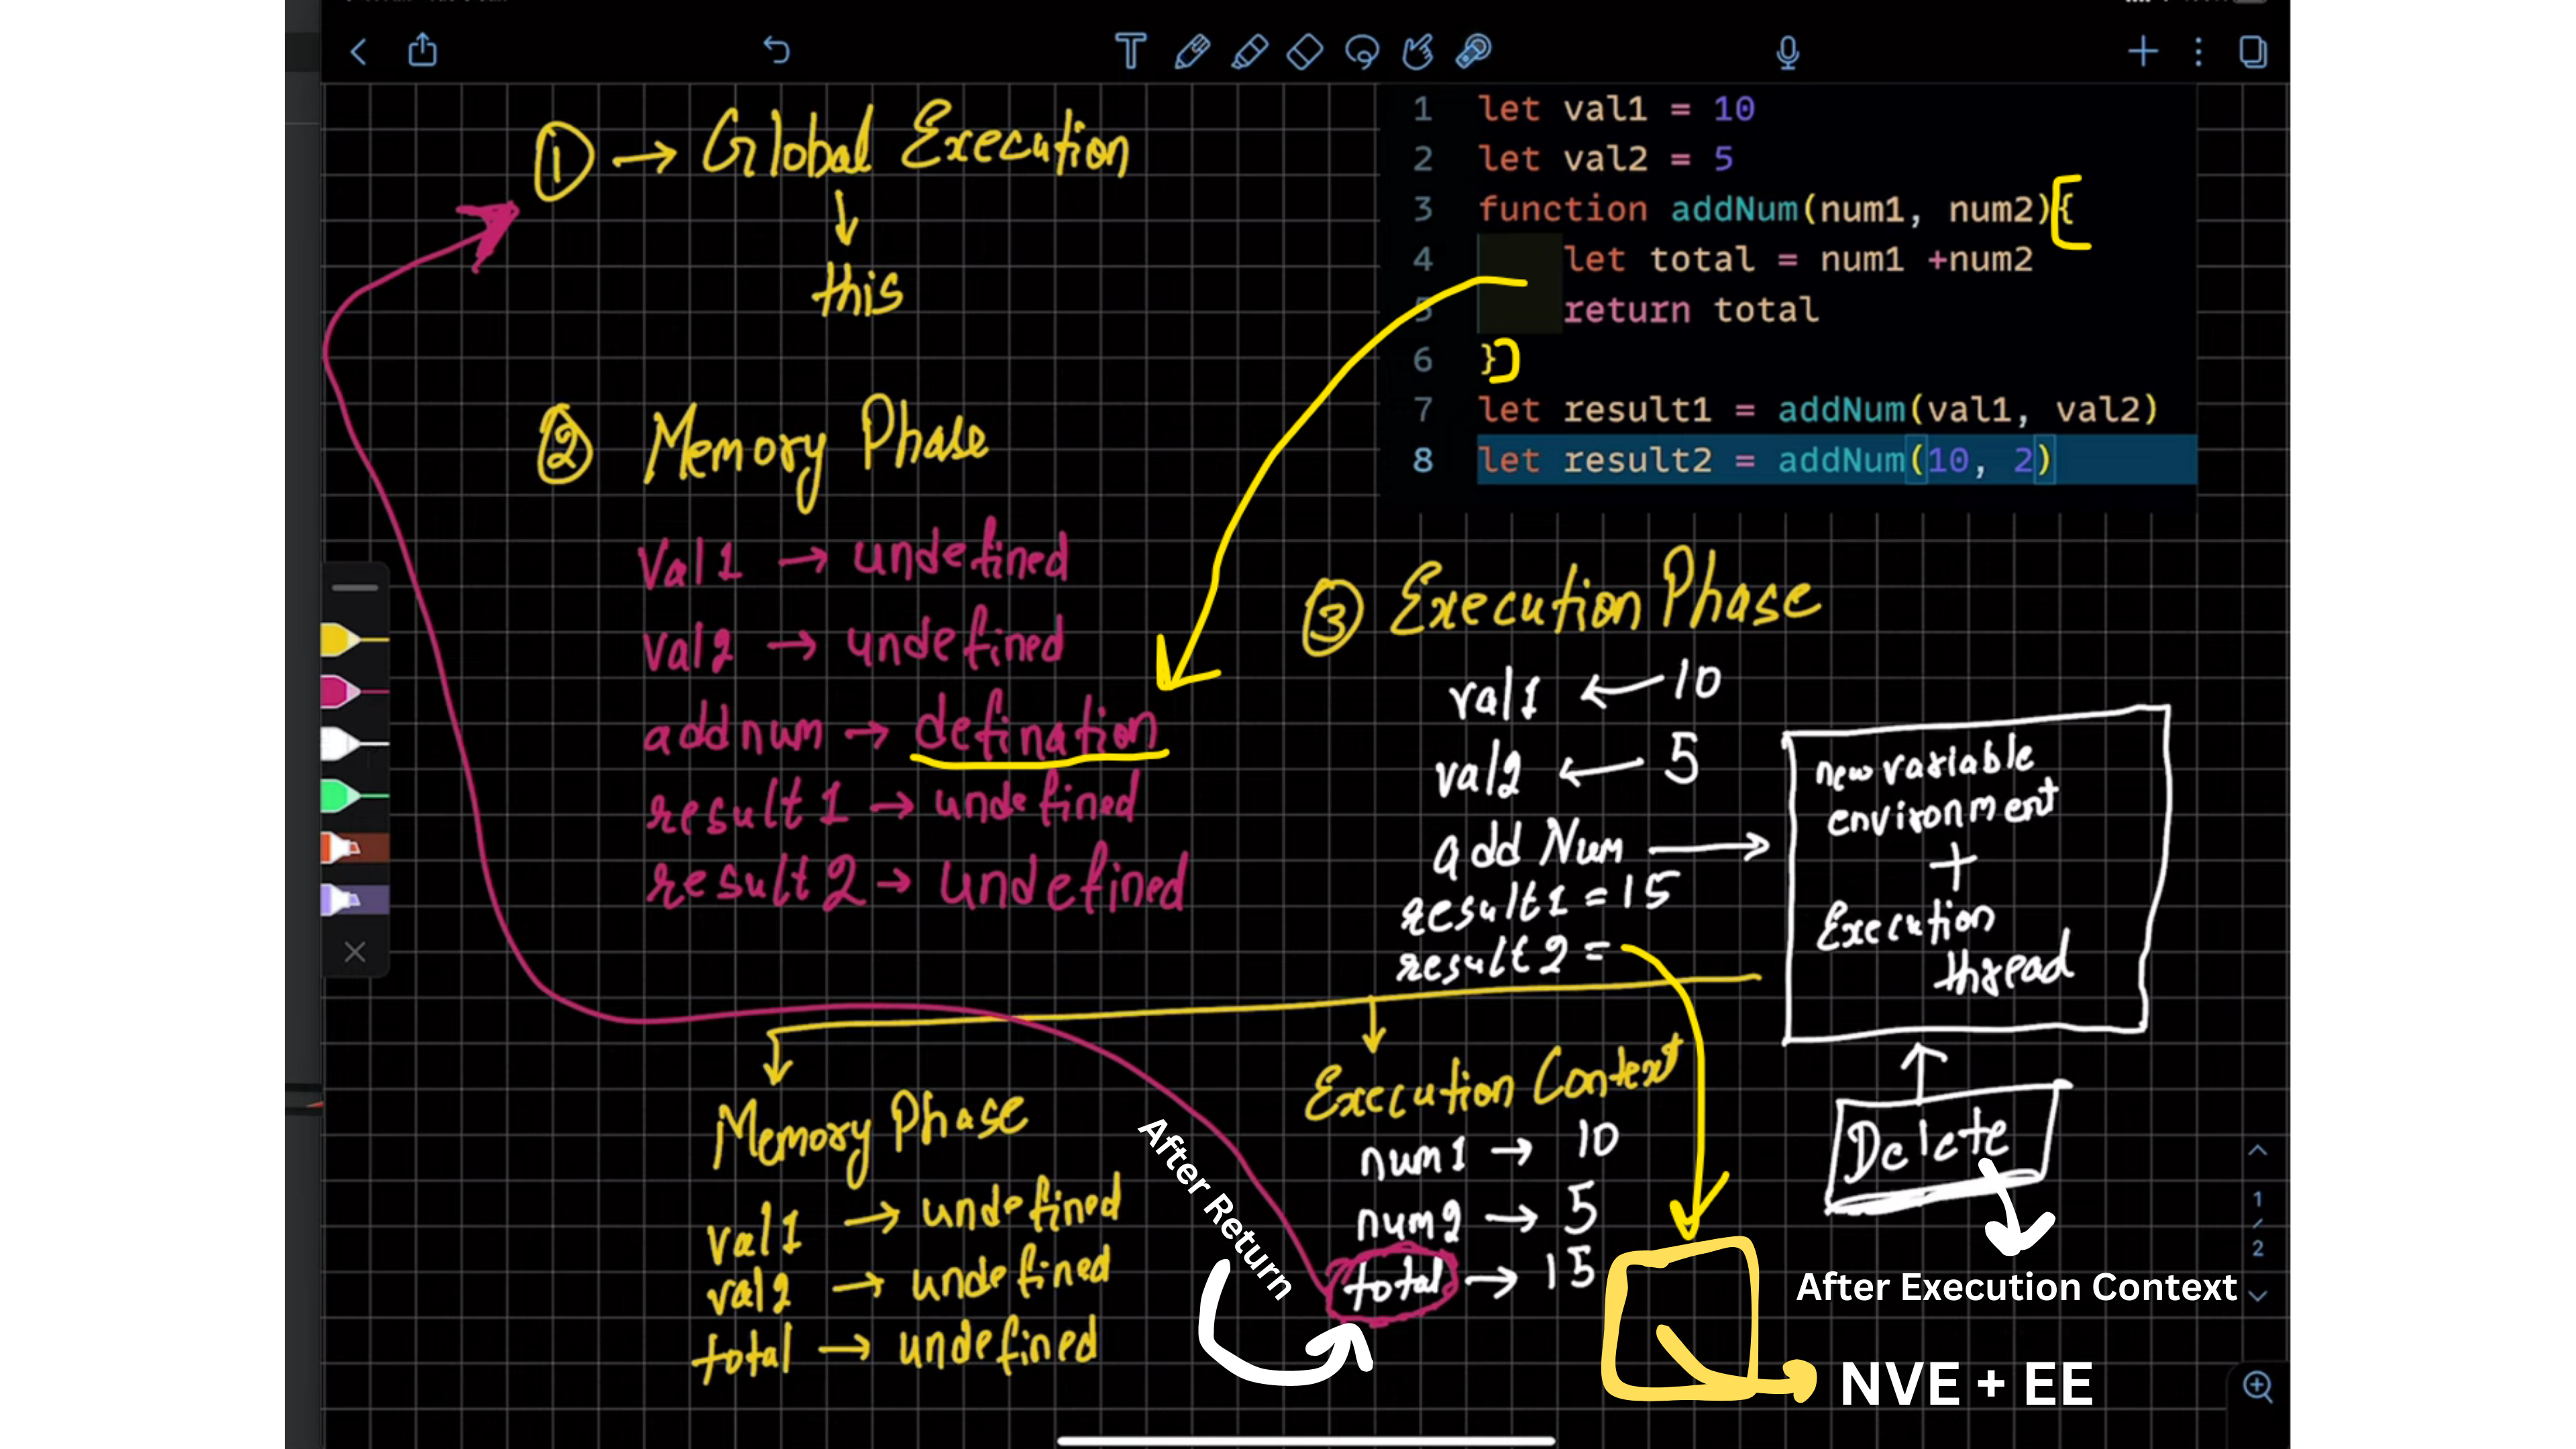 ① → Global Execution
↓
this
② Memory Phase
Val1 → undefined
val2 → undefined
addnum → defination
result1 → undefined
result2 → undefined
1 let val1 = 10
2 let val2 = 5
3 function addNum(num1, num2){
4 let total = num1 +num2
5 return total
6 }
7 let result1 = addNum(val1, val2)
8 let result2 = addNum(10, 2)
③ Execution Phase
val1 ← 10
val2 ← 5
add Num →
result1 = 15
result2 =
new variable
environment
+
Execution
thread
Delete
After Execution Context
Memory Phase
val1 → undefined
val2 → undefined
total → undefined
After Return
Execution Context
num1 → 10
num2 → 5
total → 15
NVE + EE
1
/
2